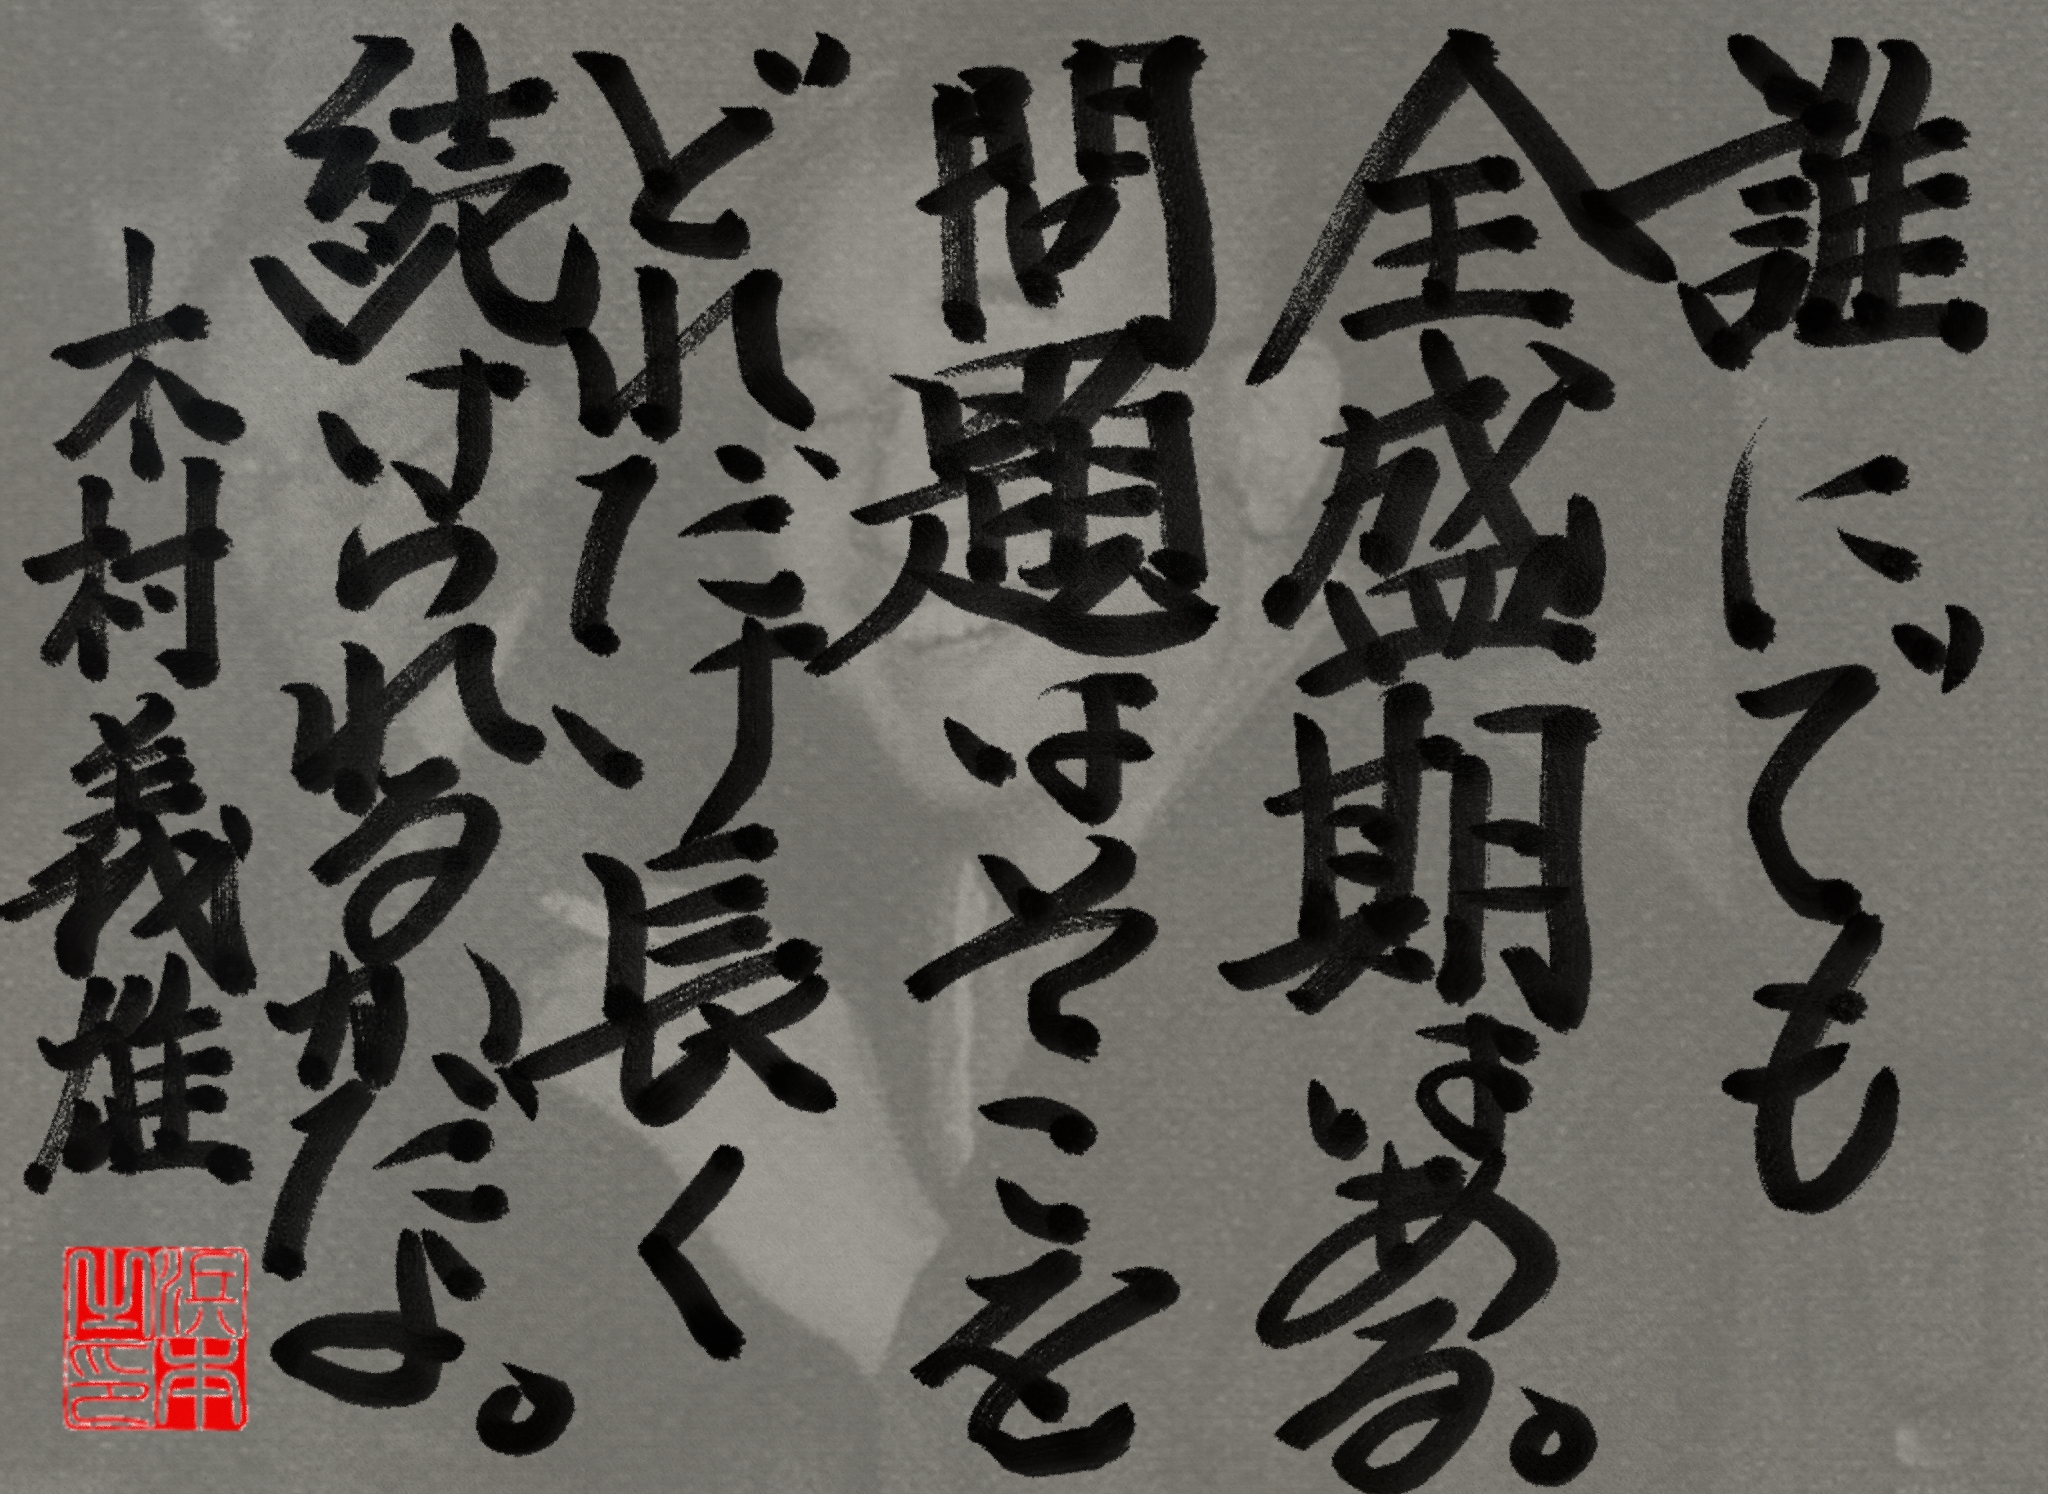 誰にでも
全盛期はある。
問題はそこを
どれだけ長く
続けられるかだよ。
木村義雄
浜本
之印